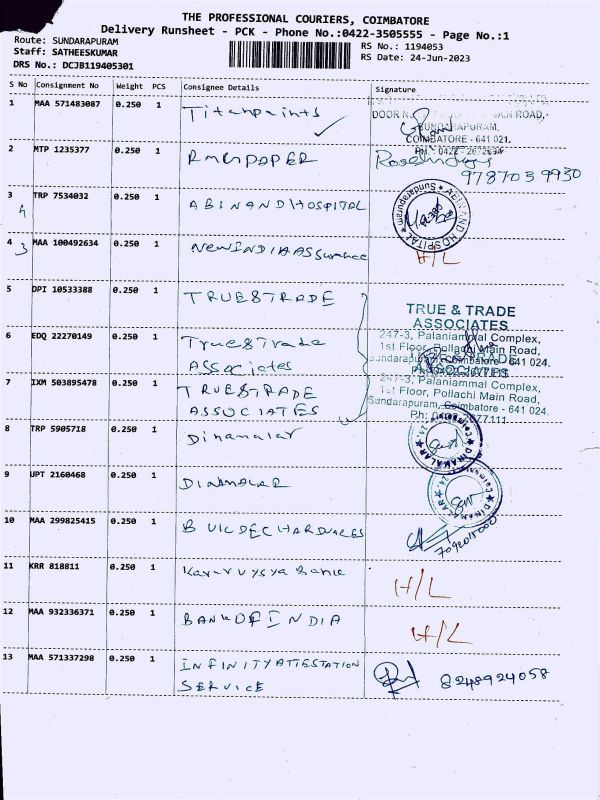 THE PROFESSIONAL COURIERS, COIMBATORE
Delivery Runsheet - PCK - Phone No.:0422-3505555 - Page No.:1
Route: SUNDARAPURAM
Staff: SATHEESKUMAR
DRS No.: DCJB119405301
RS No.: 1194053
RS Date: 24-Jun-2023
S No Consignment No Weight PCS Consignee Details Signature
1 MAA 571483087 0.250 1 Titanpaints
DOOR NO. MAIN ROAD,
SUNDARAPURAM,
COIMBATORE - 641 021.
2 MTP 1235377 0.250 1 RMGPAPER
9787039930
3 TRP 7534032 0.250 1 ABINANDHOSPITAL
4
ABINAND HOSPITAL Sundarapuram
4 MAA 100492634 0.250 1 NewINDIAASSurance H/L
3
5 DPI 10533388 0.250 1 TRUE&TRADE
TRUE & TRADE
ASSOCIATES
6 EDQ 22270149 0.250 1 True&Trade
ASSociates
247-3, Palaniammal Complex,
1st Floor, Pollachi Main Road,
Sundarapuram, Coimbatore - 641 024.
TRUE & TRADE
ASSOCIATES
7 IXM 503895478 0.250 1 TRUE&TRADE
ASSOCIATES
247-3, Palaniammal Complex,
1st Floor, Pollachi Main Road,
Sundarapuram, Coimbatore - 641 024.
8 TRP 5905718 0.250 1 Dinamalar
DINAMALAR
9 UPT 2160468 0.250 1 DINAMALAR
DINAMALAR
10 MAA 299825415 0.250 1 BUILDECHARDWARES
7092015000
11 KRR 818811 0.250 1 Karurvysya Bank H/L
12 MAA 932336371 0.250 1 BANKOFINDIA H/L
13 MAA 571337298 0.250 1 INFINITYATTESTATION
SERVICE
8248924058